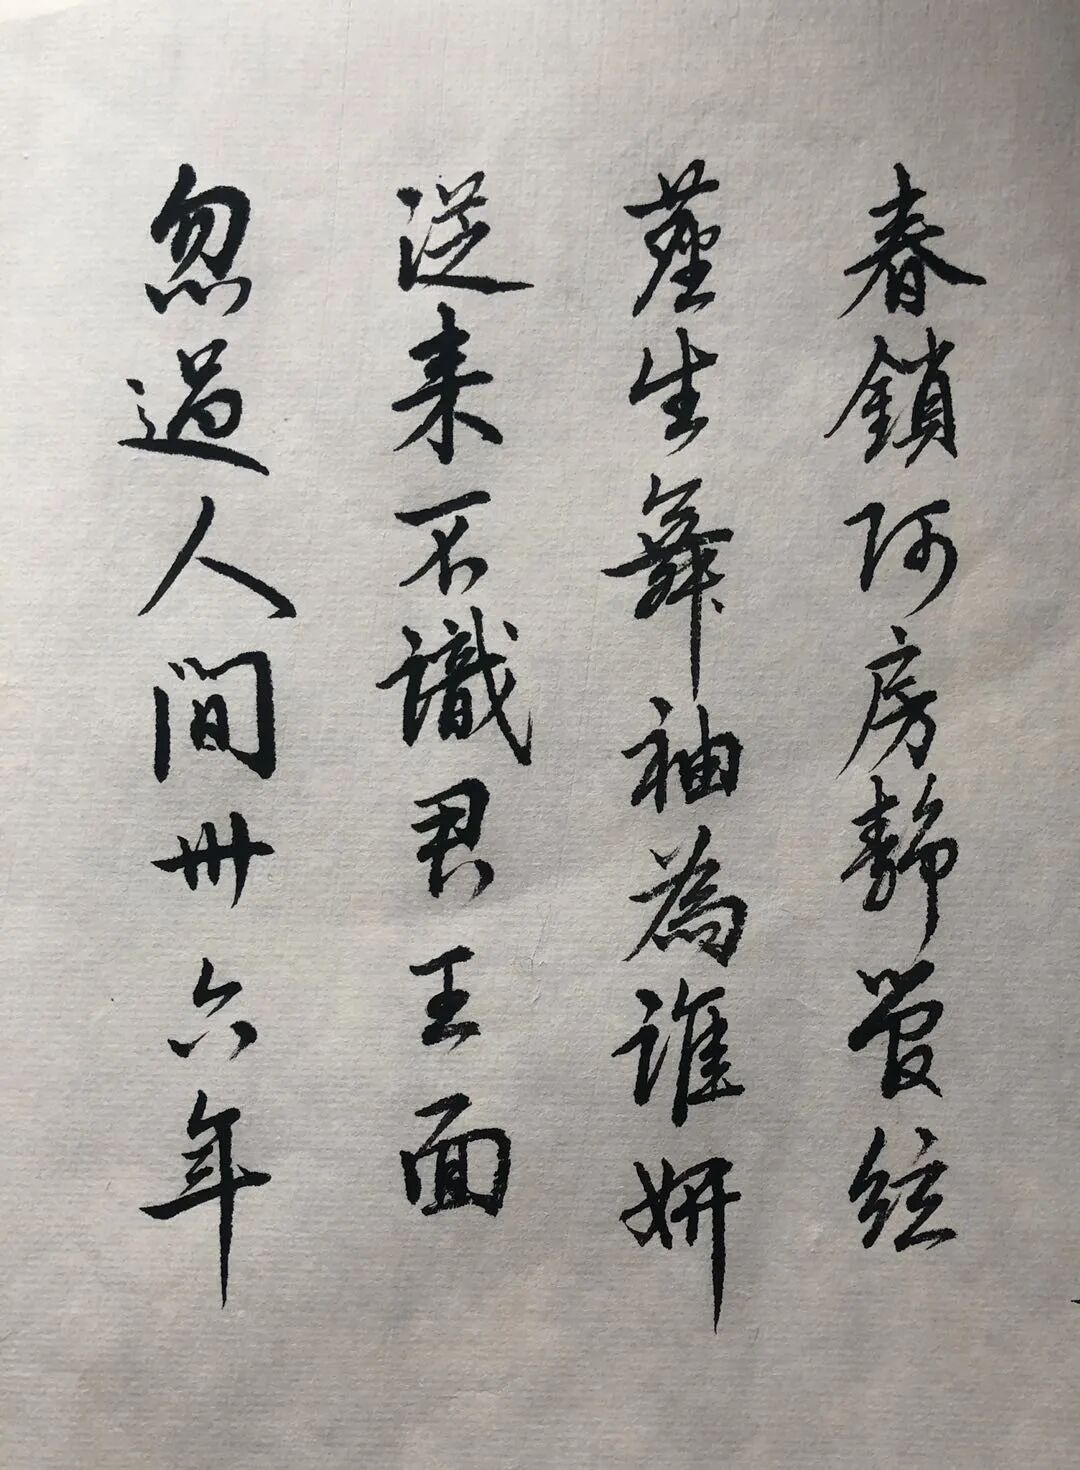 春鎖阿房靜管絃
塵生舞袖為誰妍
從来不識君王面
忽過人間卅六年